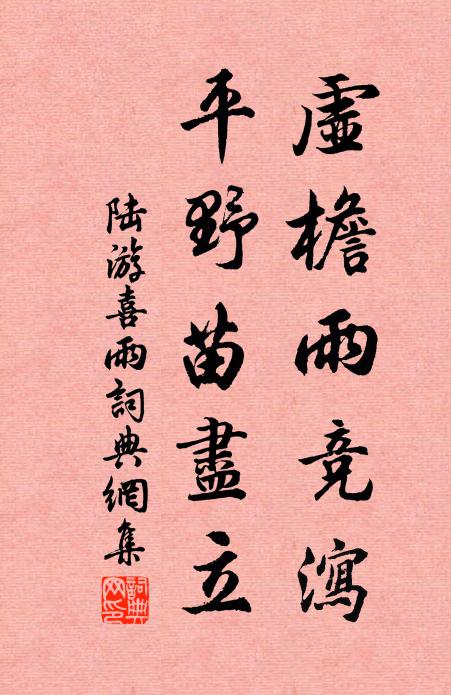 虛檐雨竞瀉
平野苗盡立
陸游喜雨詞典網集
詞典
网印